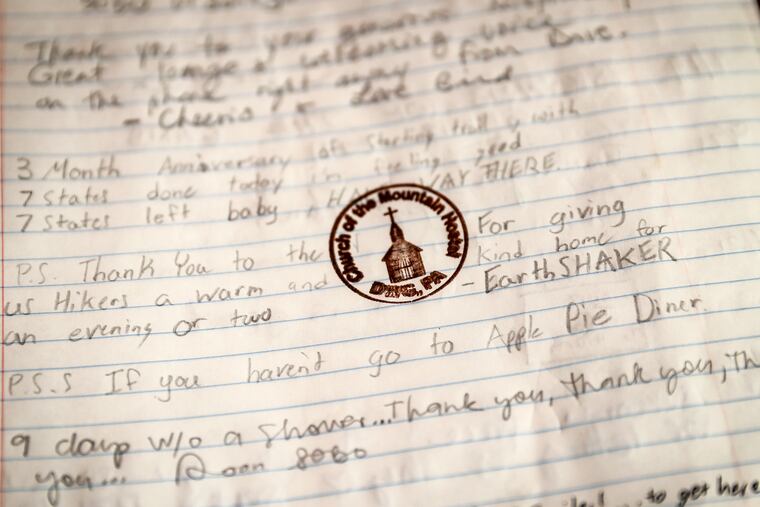 Thank you to your generous
Great lounge & welcoming voice
on the phone right away from Dave.
- Cheerio & Love Bind
3 Month Anniversary of starting trail, with
7 States done today i'm feeling good
7 States left baby, HALFWAY THERE
P.S. Thank You to the
For giving
us Hikers a warm and
kind home for
an evening or two
- EarthSHAKER
Church of the Mountain Hostel
DWG, PA
P.S.S If you haven't go to Apple Pie Diner.
9 days w/o a shower...thank you, thank you, th
you...
to get here